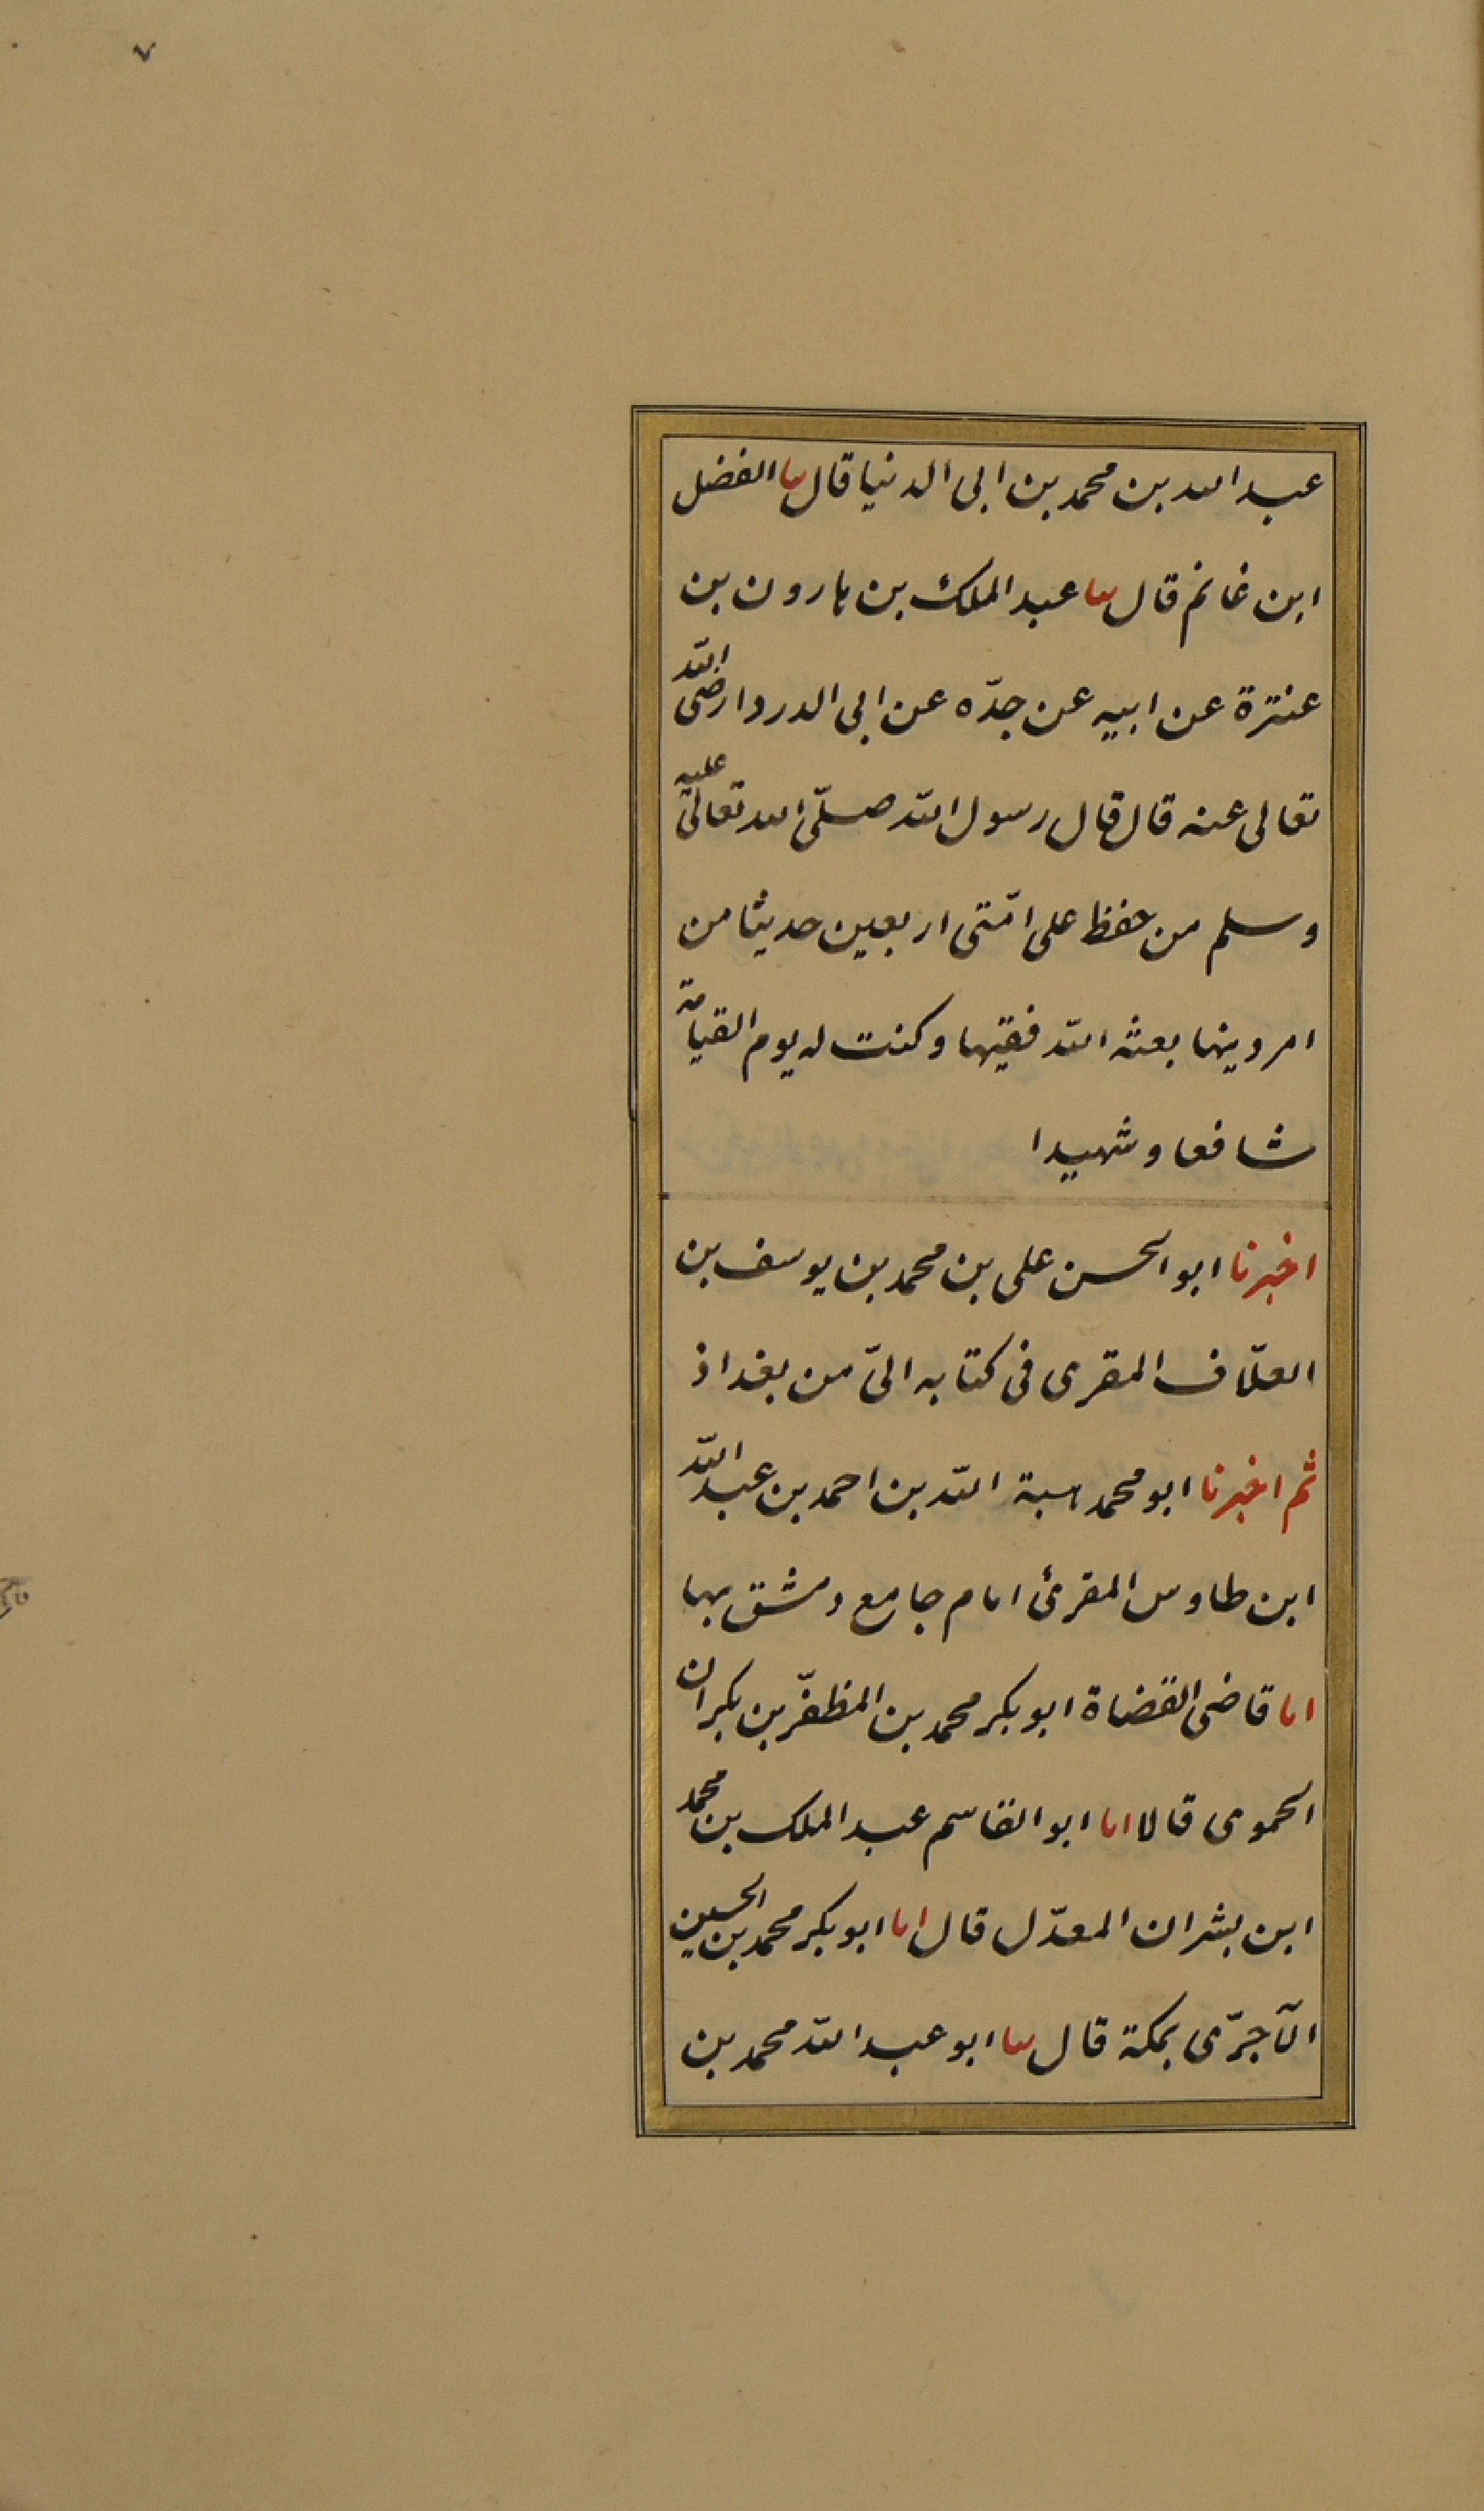 ٧
عبد الله بن محمد بن ابى الدنيا قال نا الفضل
ابن غانم قال نا عبد الملك بن هارون بن
عنترة عن ابيه عن جدّه عن ابى الدردا رضى الله
تعالى عنه قال قال رسول الله صلّى الله تعالى عليه
وسلم من حفظ على امّتى اربعين حديثا من
امر دينها بعثه الله فقيها وكنت له يوم القيامة
شافعا وشهيدا
اخبرنا ابو الحسن على بن محمد بن يوسف بن
العلّاف المقرى فى كتابه الىّ من بغداذ
ثم اخبرنا ابو محمد هبة الله بن احمد بن عبد الله
ابن طاوس المقرئ امام جامع دمشق بها
انا قاضى القضاة ابو بكر محمد بن المظفّر بن بكران
الحموى قالا انا ابو القاسم عبد الملك بن محمد
ابن بشران المعدّل قال انا ابو بكر محمد بن الحسين
الآجرّى بمكة قال نا ابو عبد الله محمد بن